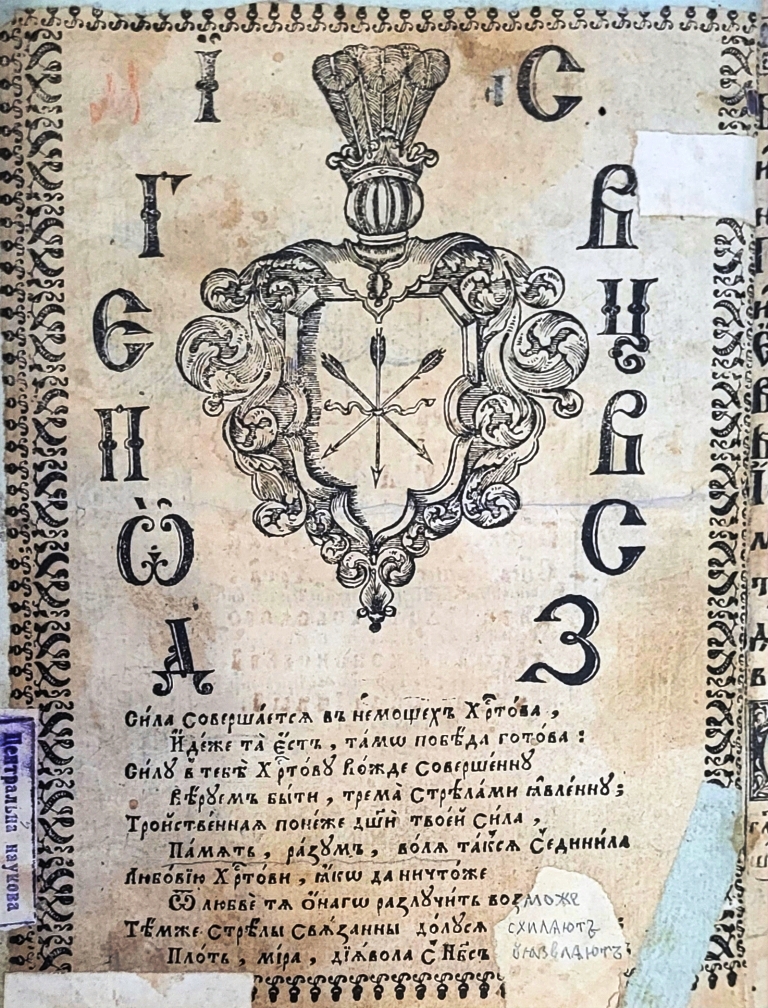 І С
Г В
Є Ц
П В
Ѡ С
Д З
Си́ла соверша́етсѧ въ не́мощехъ Хрⷭ҇то́ва ,
И҆дѣ́же та̀ є҆́стъ , та́мѡ побѣ́да гото́ва :
Си́лу в тебѣ̀ Хрⷭ҇то́ву Во́жде соверше́нну
Вѣ́руемъ бы́ти , трема̀ стрѣла́ми ꙗ҆вле́нну ;
Тро́йственнаѧ поне́же дш҃и́ твое́й си́ла ,
Па́мѧть , ра́зумъ , во́лѧ та́ксѧ с̾едини́ла
Любо́вїю Хрⷭ҇то́ви , ꙗ҆́кѡ да ничто́же
Ѿ любве̂ тѧ ѻ҆́нагѡ разлучи́ть возможе
Тѣ́мже стрѣ́лы свѧ́занны до́лусѧ схилѧютъ :
Пло́ть , мі́ра , дїѧ́вола с̾ Нб҃съ ѹѧзвлѧютъ :
Центральна наукова